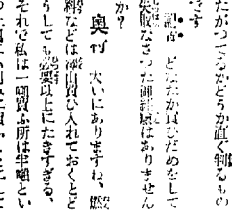 たがつてるかどうか直ぐ判るもの
です
記者　どなたか買ひだめをして
失敗なさつた御経験はありません
か?
奥村　大いにありますね、燃
料などは沢山買ひ入れておくとど
うしても必要以上にたきすぎる、
それで私は一噸買ふ所は半噸とい